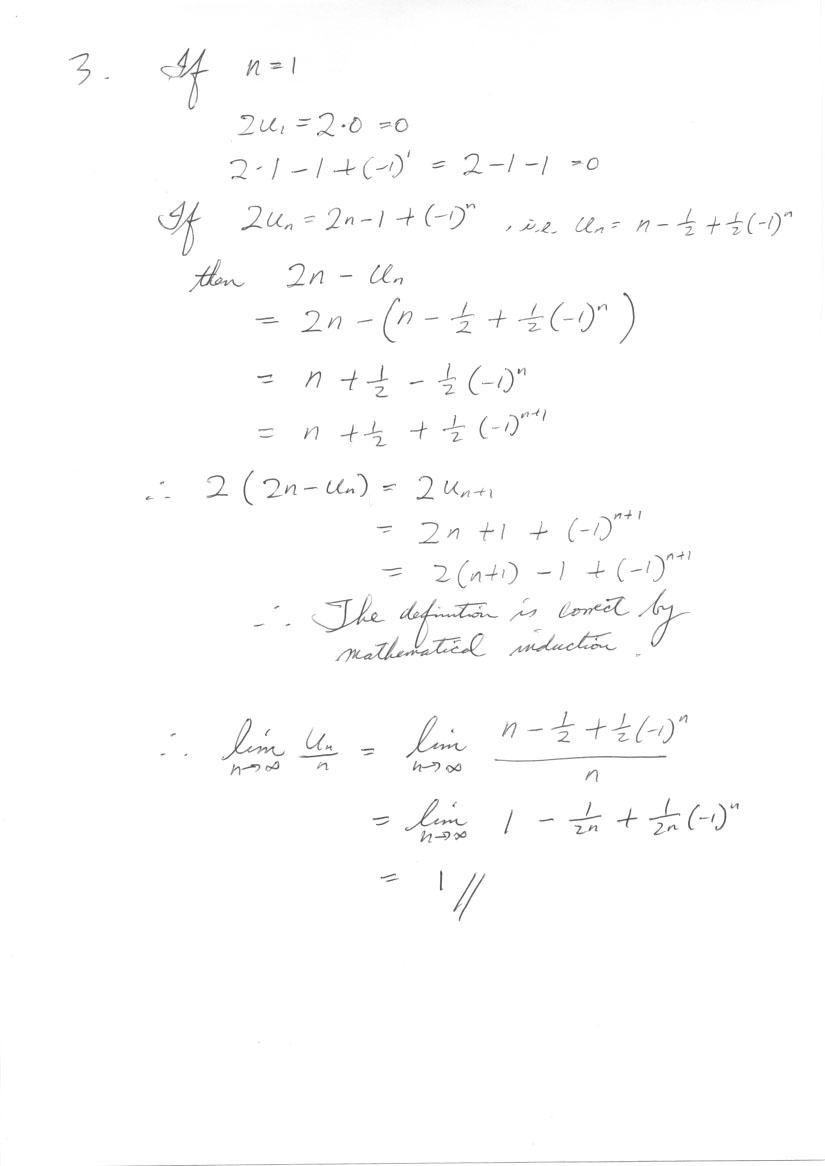 3. If n = 1
2u₁ = 2·0 = 0
2·1 – 1 + (–1)¹ = 2 – 1 – 1 = 0
If 2uₙ = 2n – 1 + (–1)ⁿ , i.e. uₙ = n – 1/2 + 1/2(–1)ⁿ
then 2n – uₙ
= 2n – (n – 1/2 + 1/2(–1)ⁿ)
= n + 1/2 – 1/2(–1)ⁿ
= n + 1/2 + 1/2(–1)ⁿ⁺¹
∴ 2(2n – uₙ) = 2uₙ₊₁
= 2n + 1 + (–1)ⁿ⁺¹
= 2(n+1) – 1 + (–1)ⁿ⁺¹
∴ The definition is correct by
mathematical induction.
∴ lim n→∞ uₙ/n = lim n→∞ (n – 1/2 + 1/2(–1)ⁿ)/n
= lim n→∞ 1 – 1/2n + 1/2n(–1)ⁿ
= 1 //